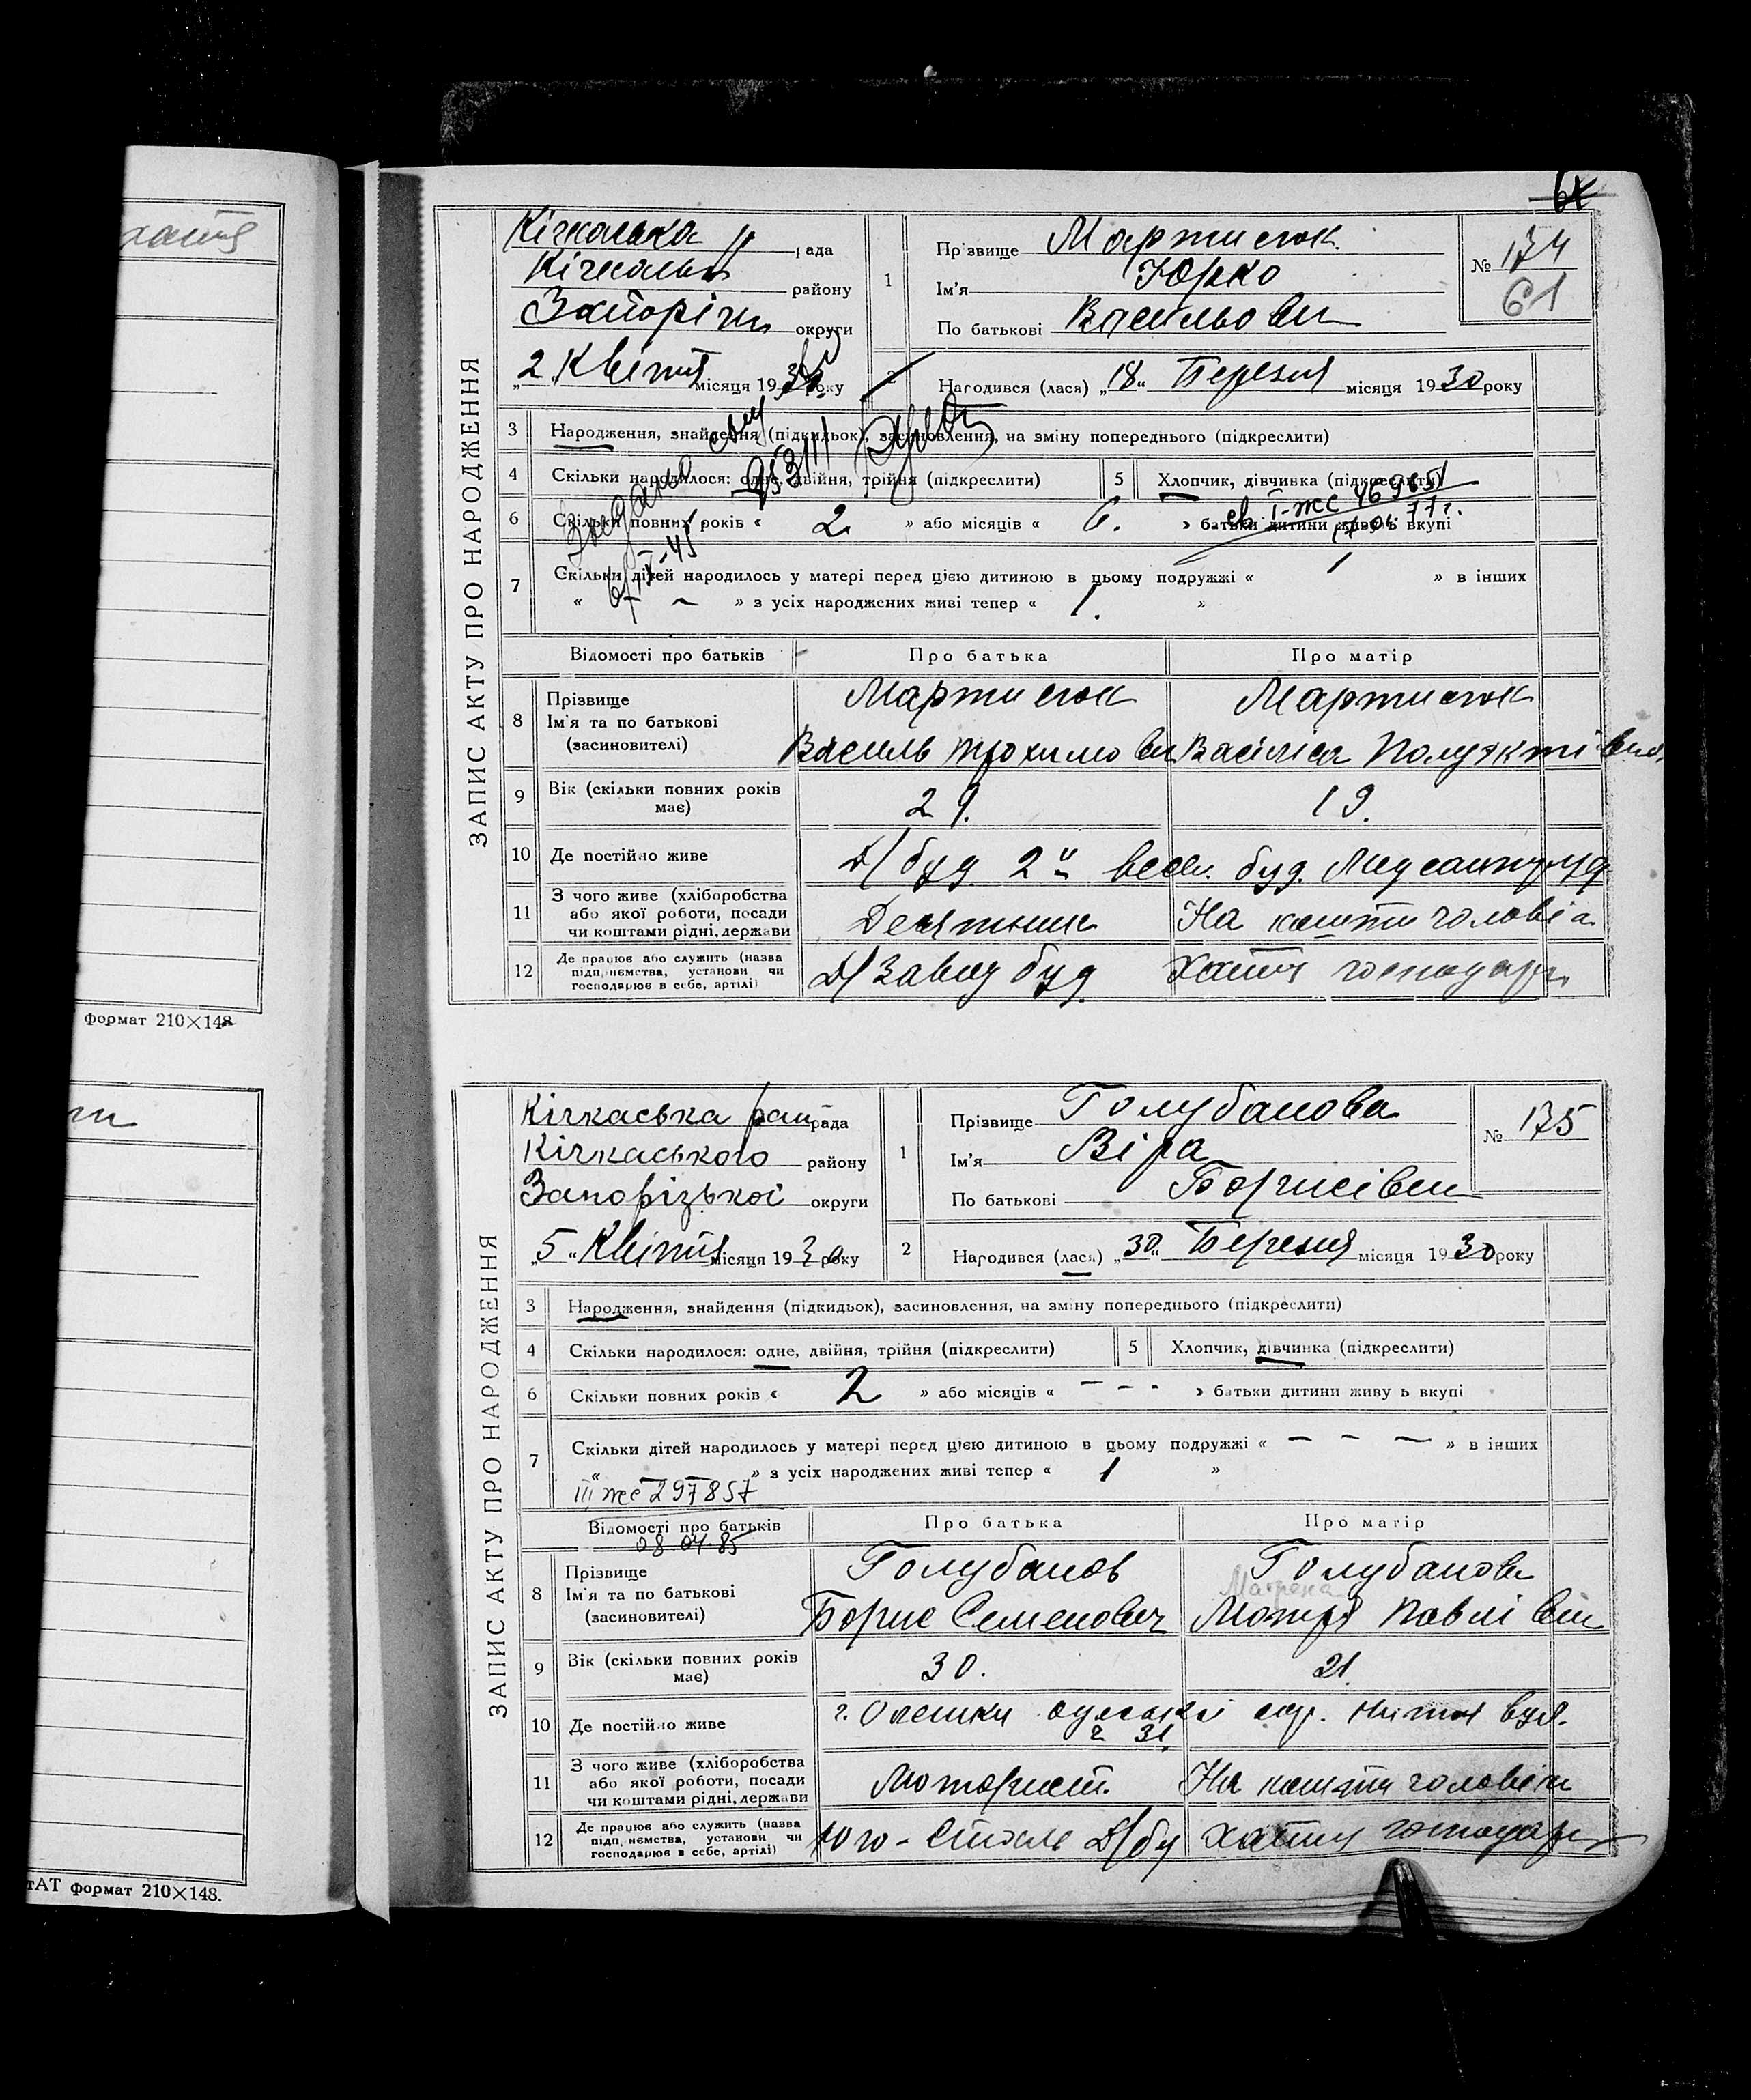 ЗАПИС АКТУ ПРО НАРОДЖЕННЯ
Кічкаська рада
району
округи
2 Квітня місяця 1930 року
1
Прізвище Мартинюк
Ім'я Юрко
По батькові Васильович
№ 174
61
2 Народився (лася) „18“ Березня місяця 1930 року
3 Народження, знайдення (підкидьок), засиновлення, на зміну попереднього (підкреслити)
4 Скільки народилося: одне, двійня, трійня (підкреслити)
5 Хлопчик, дівчинка (підкреслити)
св. І-ЖС
77 г.
6 Скільки повних років « 2 » або місяців « 6. » батьки дитини живуть вкупі
7 Скільки дітей народилось у матері перед цією дитиною в цьому подружжі « 1 » в інших
« — » з усіх народжених живі тепер « 1. »
Відомості про батьків
Про батька
Про матір
8 Прізвище
Ім'я та по батькові
(засиновителі)
Мартинюк
Василь Трохимович
Мартинюк
9 Вік (скільки повних років має)
29.
19.
10 Де постійно живе
Д/буд. 2
буд.
11 З чого живе (хліборобства
або якої роботи, посади
чи коштами рідні, держави
Десятник
На кошти чоловіка
12 Де працює або служить (назва
підприємства, установи чи
господарює в себе, артілі)
Д/Завод буд
Хатня господарка
Формат 210×148
ЗАПИС АКТУ ПРО НАРОДЖЕННЯ
Кічкаська рада
Кічкаського району
Запорізької округи
„5“ Квітня місяця 1930 року
1
Прізвище Голубанова
Ім'я Віра
По батькові Борисівна
№ 175
2 Народився (лася) „30“ Березня місяця 1930 року
3 Народження, знайдення (підкидьок), засиновлення, на зміну попереднього (підкреслити)
4 Скільки народилося: одне, двійня, трійня (підкреслити)
5 Хлопчик, дівчинка (підкреслити)
6 Скільки повних років « 2 » або місяців « - - - » батьки дитини живуть вкупі
7 Скільки дітей народилось у матері перед цією дитиною в цьому подружжі « — — — » в інших
« » з усіх народжених живі тепер « 1 »
III ЖС 297857
Відомості про батьків
08 04.85
Про батька
Про матір
8 Прізвище
Ім'я та по батькові
(засиновителі)
Голубанов
Борис Семенович
Голубанова
Матрена
Мотря Павлівна
9 Вік (скільки повних років має)
30.
21
10 Де постійно живе
г. Олешки
вул.
31.
11 З чого живе (хліборобства
або якої роботи, посади
чи коштами рідні, держави
Моторист.
На кошти чоловіка
12 Де працює або служить (назва
підприємства, установи чи
господарює в себе, артілі)
Юго-Сталь Д/бу
Хатня господарка
тАТ формат 210×148.